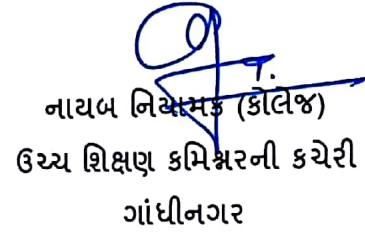 નાયબ નિયામક (કોલેજ)
ઉચ્ચ શિક્ષણ કમિશ્નરની કચેરી
ગાંધીનગર